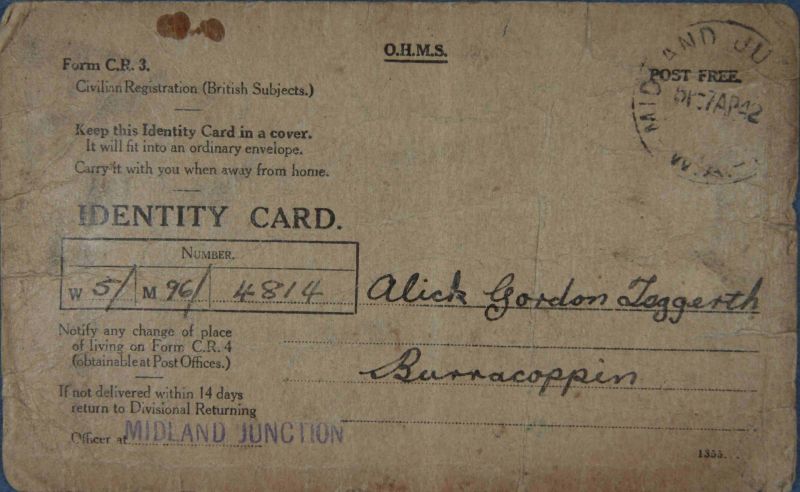 O.H.M.S.
Form C.R. 3.
Civilian Registration (British Subjects.)
POST FREE.
MIDLAND JU
7AP42
W.
Keep this Identity Card in a cover.
It will fit into an ordinary envelope.
Carry it with you when away from home.
IDENTITY CARD.
NUMBER.
W 5/ M 96/ 4814
Alick Gordon Teggerth
Notify any change of place
of living on Form C.R. 4
(obtainable at Post Offices.)
Burracoppin
If not delivered within 14 days
return to Divisional Returning
Officer at MIDLAND JUNCTION
1355...